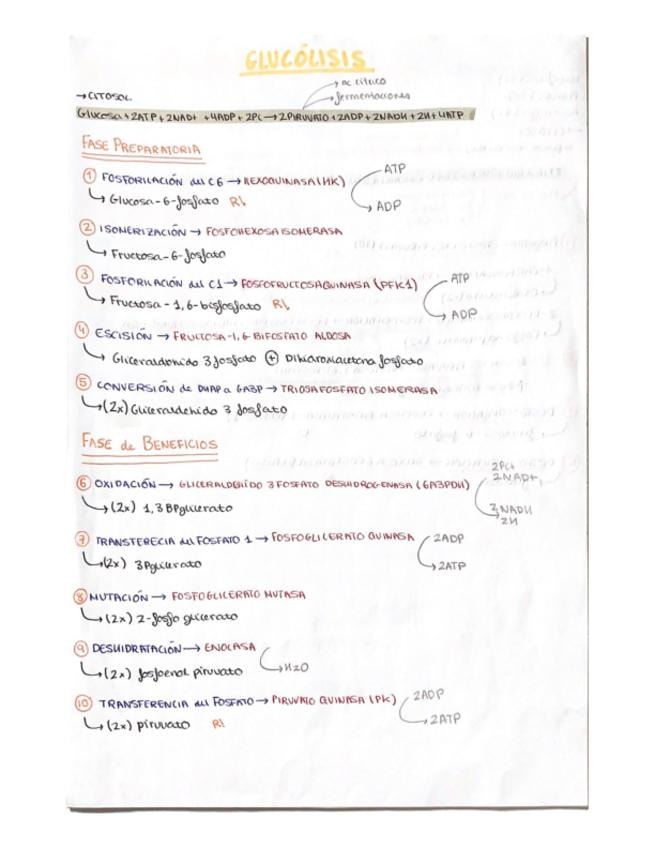 GLUCÓLISIS
→ ac cítrico
→ CITOSOL
→ fermentaciones
Glucosa + 2ATP + 2NAD+ + 4ADP + 2Pi → 2PIRUVATO + 2ADP + 2NADH + 2H + 4ATP
FASE PREPARATORIA
① FOSFORILACIÓN del C6 → HEXOQUINASA (HK) ATP
↳ Glucosa-6-fosfato R! → ADP
② ISOMERIZACIÓN → FOSFOHEXOSA ISOMERASA
↳ Fructosa-6-fosfato
③ FOSFORILACIÓN del C1 → FOSFOFRUCTOSAQUINASA (PFK1) ATP
↳ Fructosa-1,6-bisfosfato R! → ADP
④ ESCISIÓN → FRUCTOSA-1,6-BIFOSFATO ALDOSA
↳ Gliceraldehido 3 fosfato ⊕ Dihidroxiacetona fosfato
⑤ CONVERSIÓN de DHAP a GA3P → TRIOSAFOSFATO ISOMERASA
↳ (2x) Gliceraldehido 3 fosfato
FASE de BENEFICIOS
2Pi
⑥ OXIDACIÓN → GLICERALDEHÍDO 3 FOSFATO DESHIDROGENASA (GA3PDH) 2NAD+
↳ (2x) 1,3 BPglicerato 2NADH
2H
⑦ TRANSFERECIA del FOSFATO 1 → FOSFOGLICERATO QUINASA 2ADP
↳ (2x) 3Pglicerato → 2ATP
⑧ MUTACIÓN → FOSFOGLICERATO MUTASA
↳ (2x) 2-fosfo glicerato
⑨ DESHIDRATACIÓN → ENOLASA
↳ (2x) fosfoenol piruvato → H2O
⑩ TRANSFERENCIA del FOSFATO → PIRUVATO QUINASA (PK) 2ADP
↳ (2x) piruvato R! → 2ATP